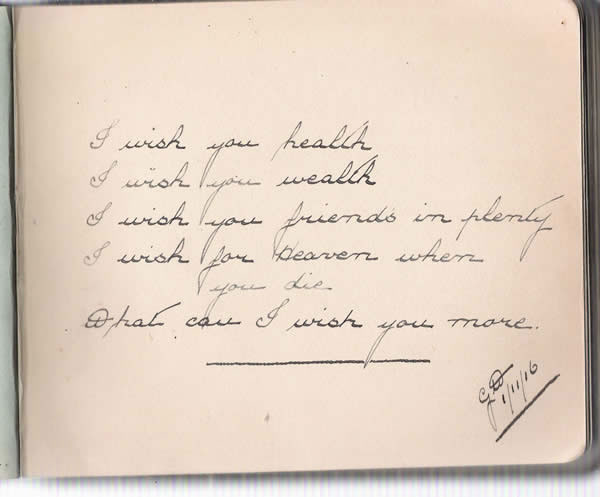 I wish you health
I wish you wealth
I wish you friends in plenty
I wish for Heaven when
you die
What can I wish you more.
1/11/16